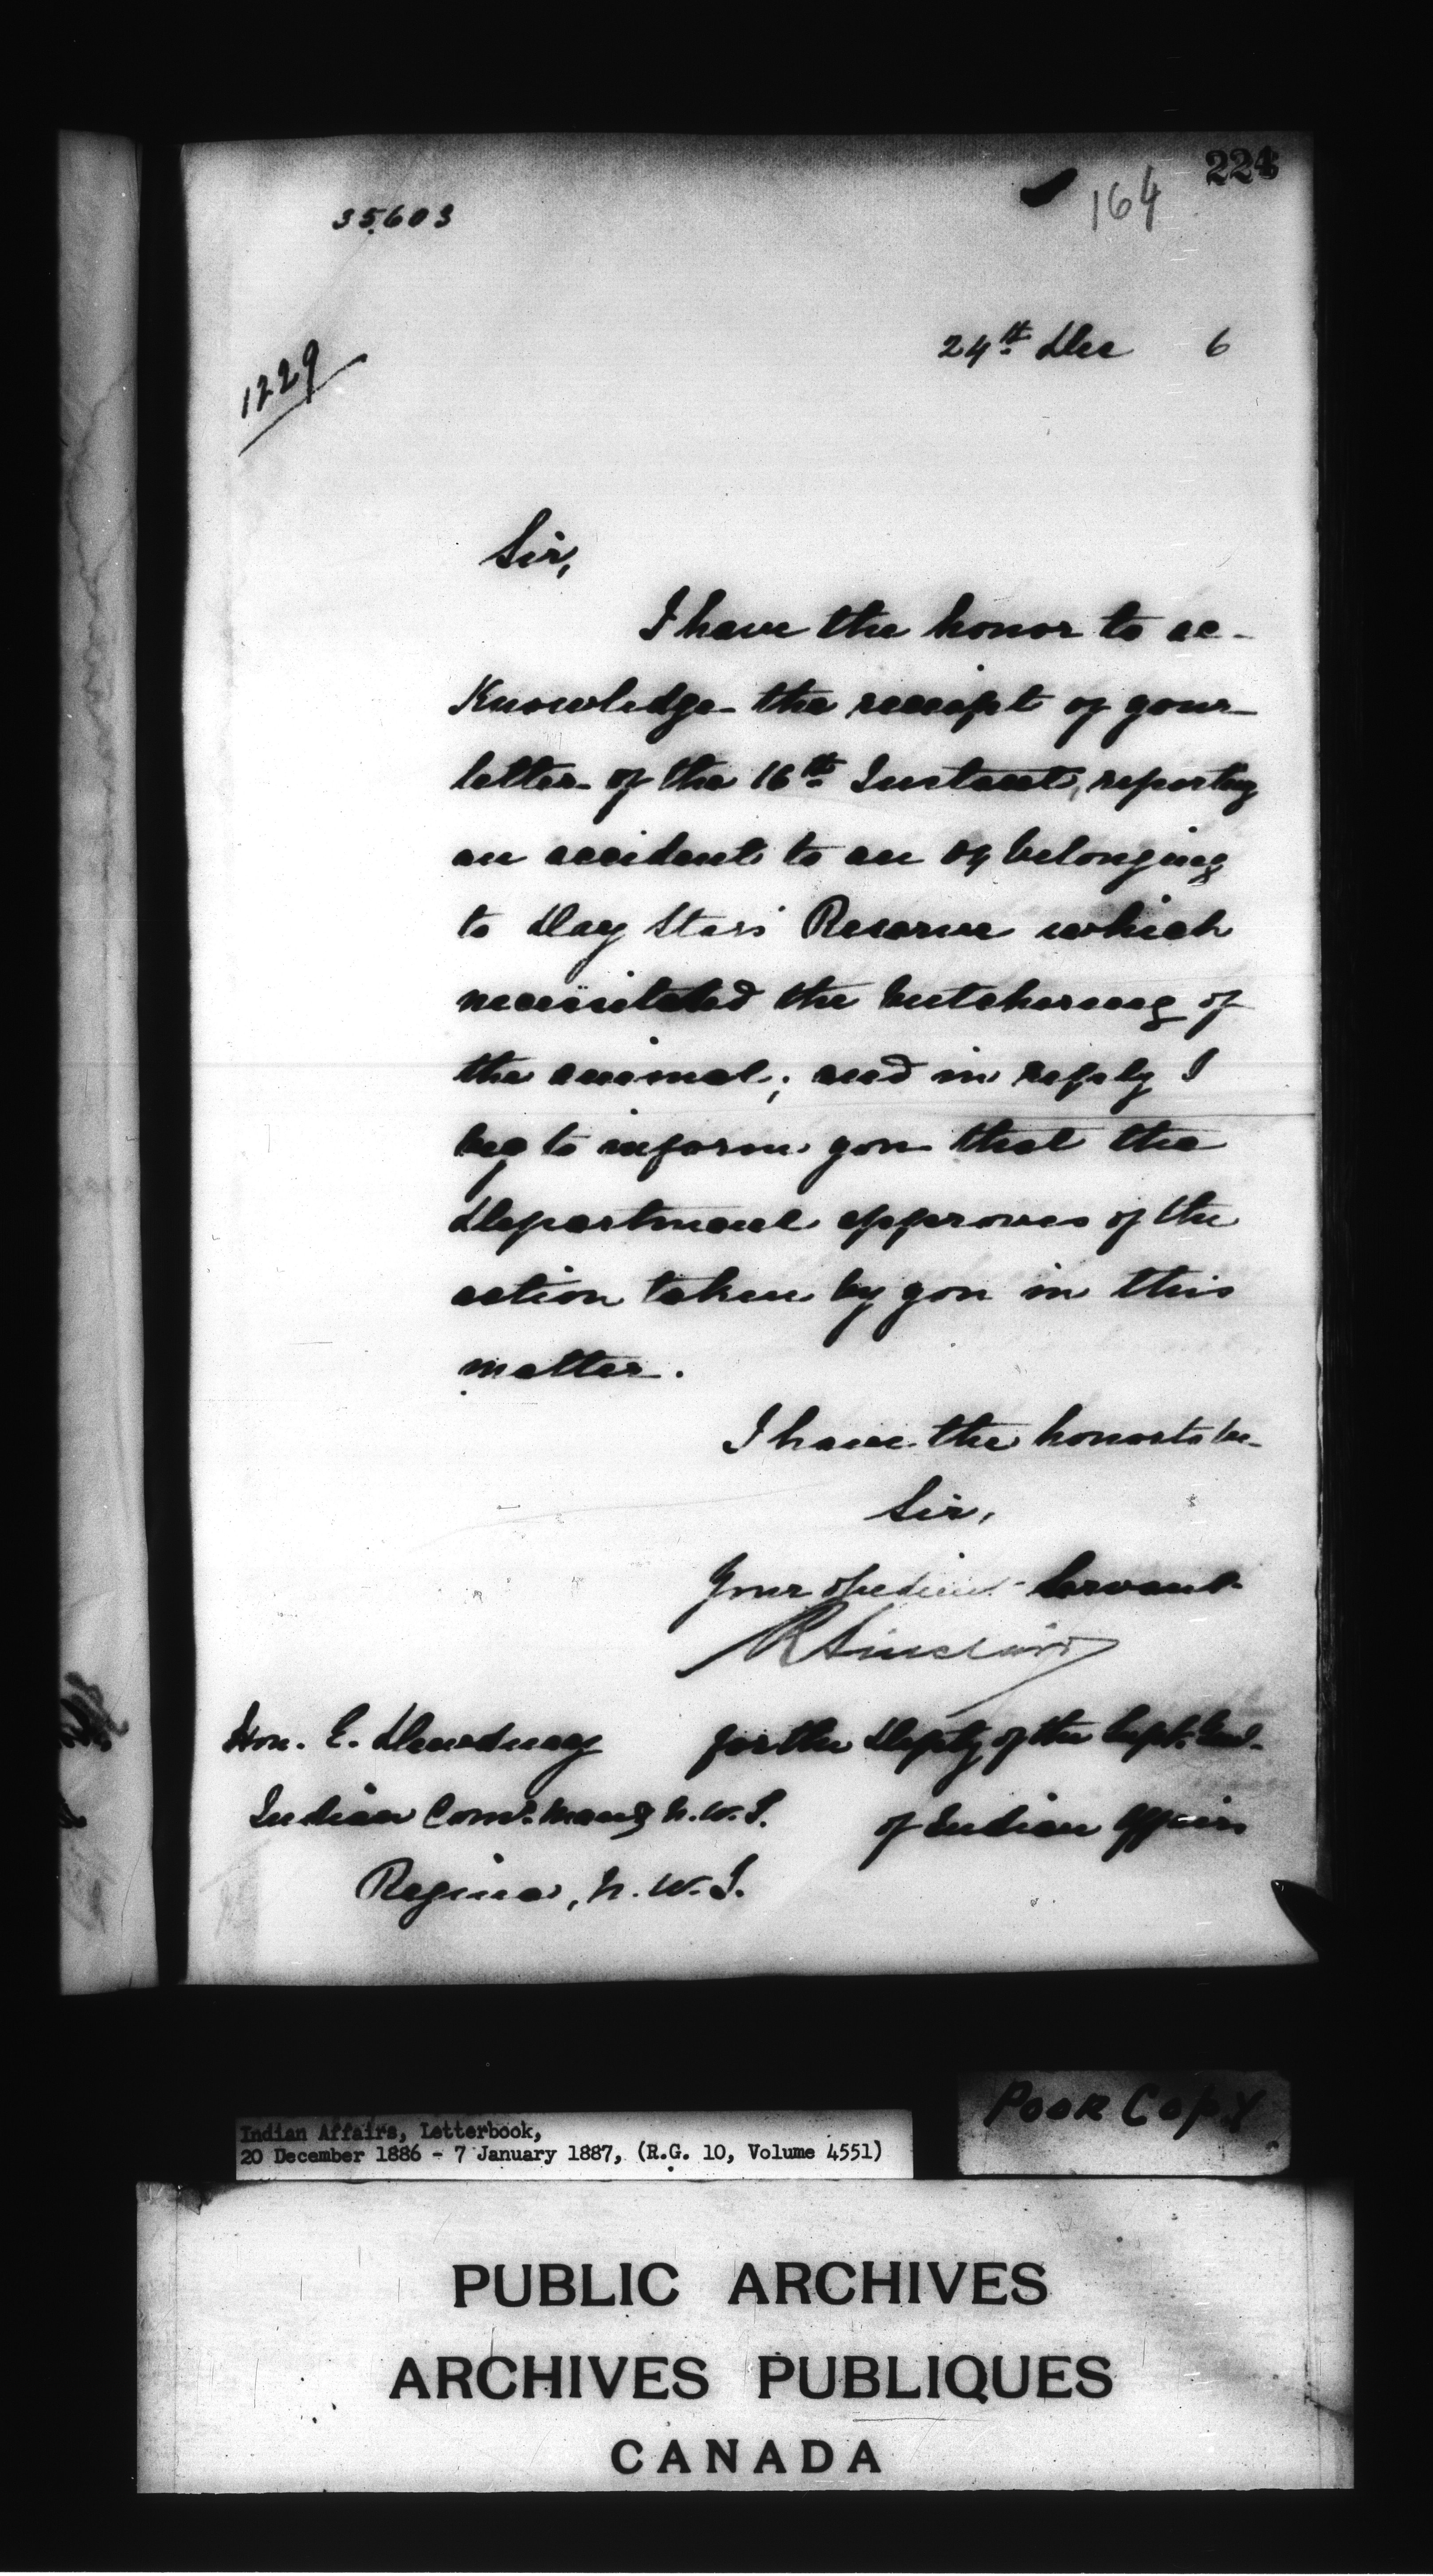 224
164
35603
24th. Dec 6
1229
Sir,
I have the honor to ac-
knowledge the receipt of your
letter of the 16th. Instant, reporting
an accident to an ox belonging
to Day Stars' Reserve which
necessitated the butchering of
the animal; and in reply I
beg to inform you that the
Department approves of the
action taken by you in this
matter.
I have the honor to be
Sir,
Your obedient Servant
R Sinclair
Hon. E. Dewdney for the Depty of the Supt. Genl.
Indian Comr. Man & N.W.T. of Indian Affairs
Regina, N.W.T.
Poor Copy
Indian Affairs, Letterbook,
20 December 1886 - 7 January 1887, (R.G. 10, Volume 4551)
PUBLIC ARCHIVES
ARCHIVES PUBLIQUES
CANADA